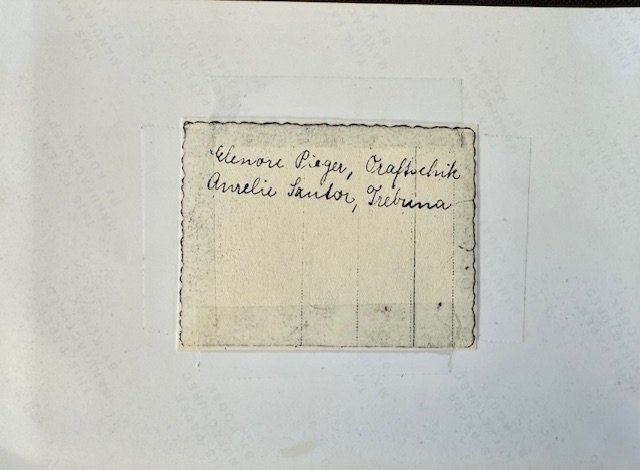 Elenore Pieger, Oraftschik
Aurelie Santor, Trebuna